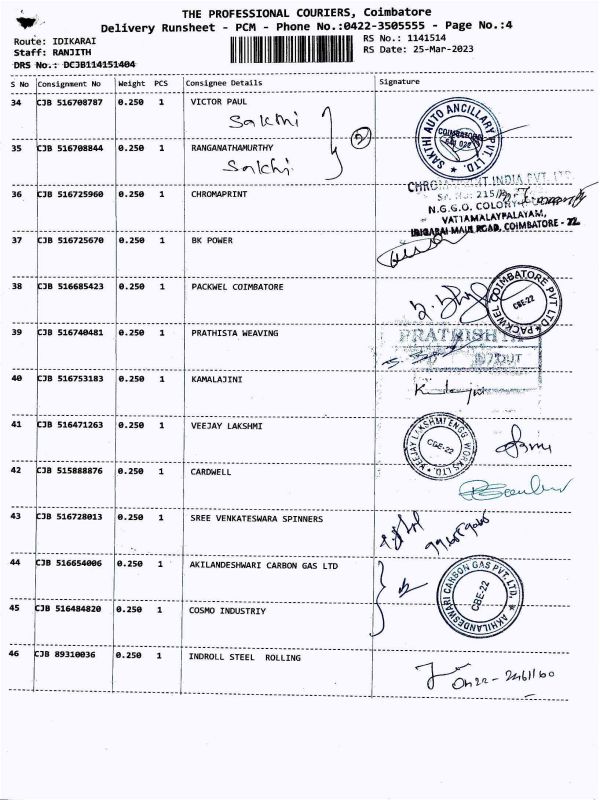 THE PROFESSIONAL COURIERS, Coimbatore
Delivery Runsheet - PCM - Phone No.:0422-3505555 - Page No.:4
Route: IDIKARAI RS No.: 1141514
Staff: RANJITH RS Date: 25-Mar-2023
DRS No.: DCJB114151404
S No Consignment No Weight PCS Consignee Details Signature
34 CJB 516708787 0.250 1 VICTOR PAUL
Sakthi
SAKTHI AUTO ANCILLARY PVT. LTD.
COIMBATORE
35 CJB 516708844 0.250 1 RANGANATHAMURTHY
Sakthi
2
36 CJB 516725960 0.250 1 CHROMAPRINT
INDIA PVT. LTD
N.G.G.O. COLONY
VATTAMALAYPALAYAM,
IDIGARAI MAIN ROAD, COIMBATORE - 22
37 CJB 516725670 0.250 1 BK POWER
38 CJB 516685423 0.250 1 PACKWEL COIMBATORE
PACKWEL COIMBATORE PVT LTD
CBE-22
39 CJB 516740481 0.250 1 PRATHISTA WEAVING
PRATHISHTA
OUT
40 CJB 516753183 0.250 1 KAMALAJINI
41 CJB 516471263 0.250 1 VEEJAY LAKSHMI
VEEJAY LAKSHMI ENGG WORKS LTD.
CBE-22
42 CJB 515888876 0.250 1 CARDWELL
43 CJB 516728013 0.250 1 SREE VENKATESWARA SPINNERS
44 CJB 516654006 0.250 1 AKILANDESHWARI CARBON GAS LTD
AKHILANDESWARI CARBON GAS PVT. LTD.
CBE-22
45 CJB 516484820 0.250 1 COSMO INDUSTRIY
46 CJB 89310036 0.250 1 INDROLL STEEL ROLLING
0422-2461160